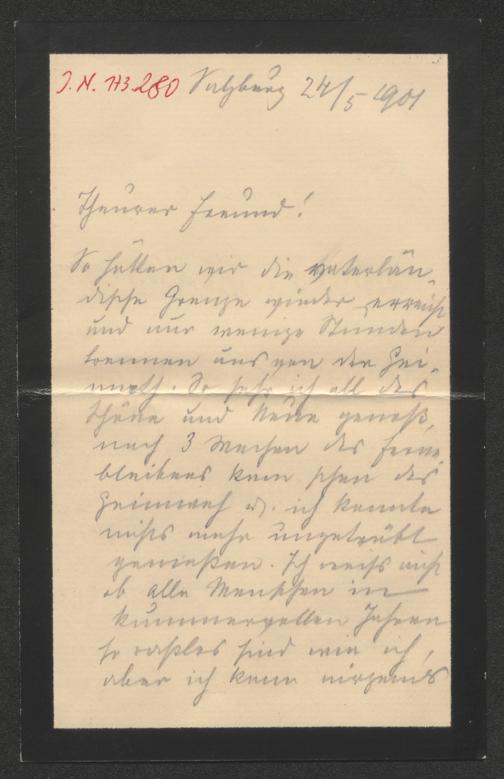 J. N. 173.280 Salzburg 24/5 1901
Theurer Freund!
So hätten wir die vaterlän-
dische Grenze wieder erreicht
und nur wenige Stunden
trennen uns von der Hei-
math. So sehr ich all das
Schöne und Neue genoß,
nach 3 Wochen des Ferne
bleibens kam schon das
Heimweh u. ich konnte
nichts mehr ungetrübt
genießen. Ich weiß nicht
ob alle Menschen in
kummervollen Jahren
so rastlos sind wie ich,
aber ich kann nirgends